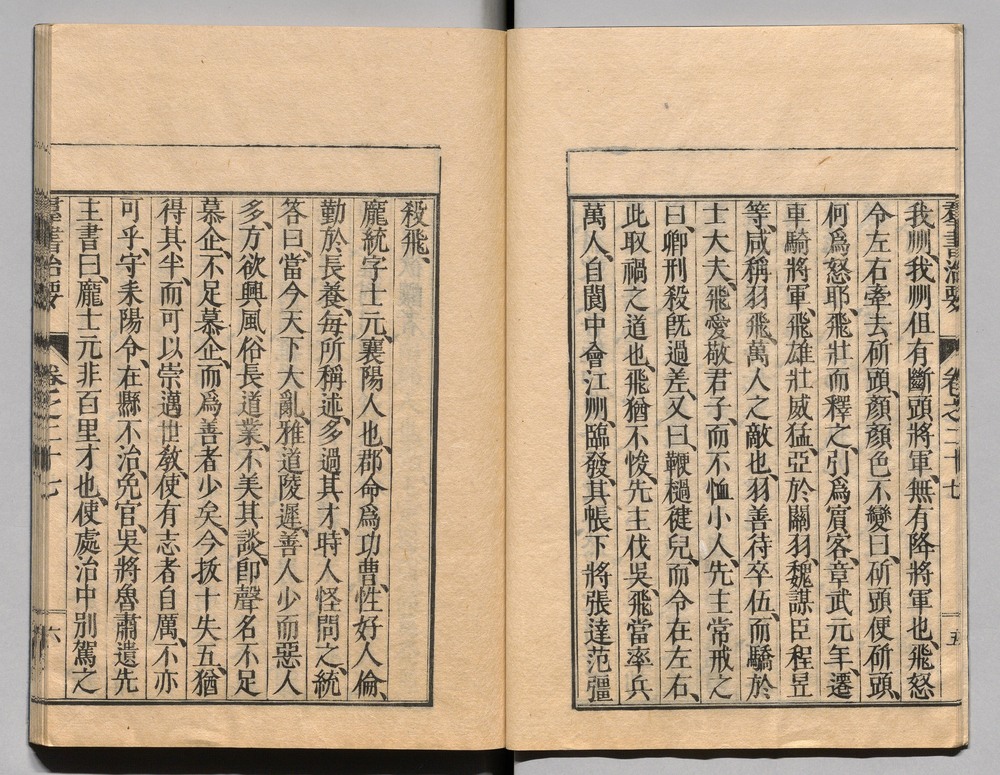 羣書治要 卷之二十七 五
我州、我州但有斷頭將軍、無有降將軍也、飛怒
令左右牽去斫頭、顏顏色不變曰、斫頭便斫頭、
何爲怒耶、飛壯而釋之、引爲賓客、章武元年、遷
車騎將軍、飛雄壯威猛、亞於關羽、魏謀臣程昱
等、咸稱羽飛、萬人之敵也、羽善待卒伍、而驕於
士大夫、飛愛敬君子、而不恤小人、先主常戒之
曰、卿刑殺旣過差、又曰、鞭檛健兒、而令在左右、
此取禍之道也、飛猶不悛、先主伐吳、飛當率兵
萬人、自閬中會江州、臨發、其帳下將張達范彊
殺飛、
龐統字士元、襄陽人也、郡命爲功曹、性好人倫、
勤於長養、每所稱述、多過其才、時人怪問之、統
答曰、當今天下大亂、雅道陵遲、善人少而惡人
多、方欲興風俗長道業、不美其談、卽聲名不足
慕企、不足慕企、而爲善者少矣、今拔十失五、猶
得其半、而可以崇邁世敎、使有志者自厲、不亦
可乎、守耒陽令、在縣不治、免官、吳將魯肅遺先
主書曰、龐士元非百里才也、使處治中別駕之
羣書治要 卷之二十七 六